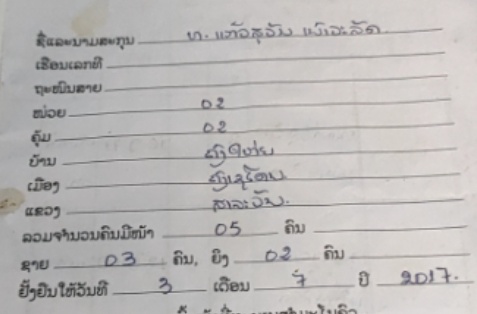 ຊື່ແລະນາມສະກຸນ ທ. ແກ້ວສຸວັນ
ເຮືອນເລກທີ
ຖະໜົນສາຍ
ໜ່ວຍ 02
ຄຸ້ມ 02
ບ້ານ
ເມືອງ
ແຂວງ ສາລະວັນ.
ລວມຈຳນວນຄົນມີໜ້າ 05 ຄົນ
ຊາຍ 03 ຄົນ, ຍິງ 02 ຄົນ
ຢັ້ງຢືນໃຫ້ວັນທີ 3 ເດືອນ 7 ປີ 2017.